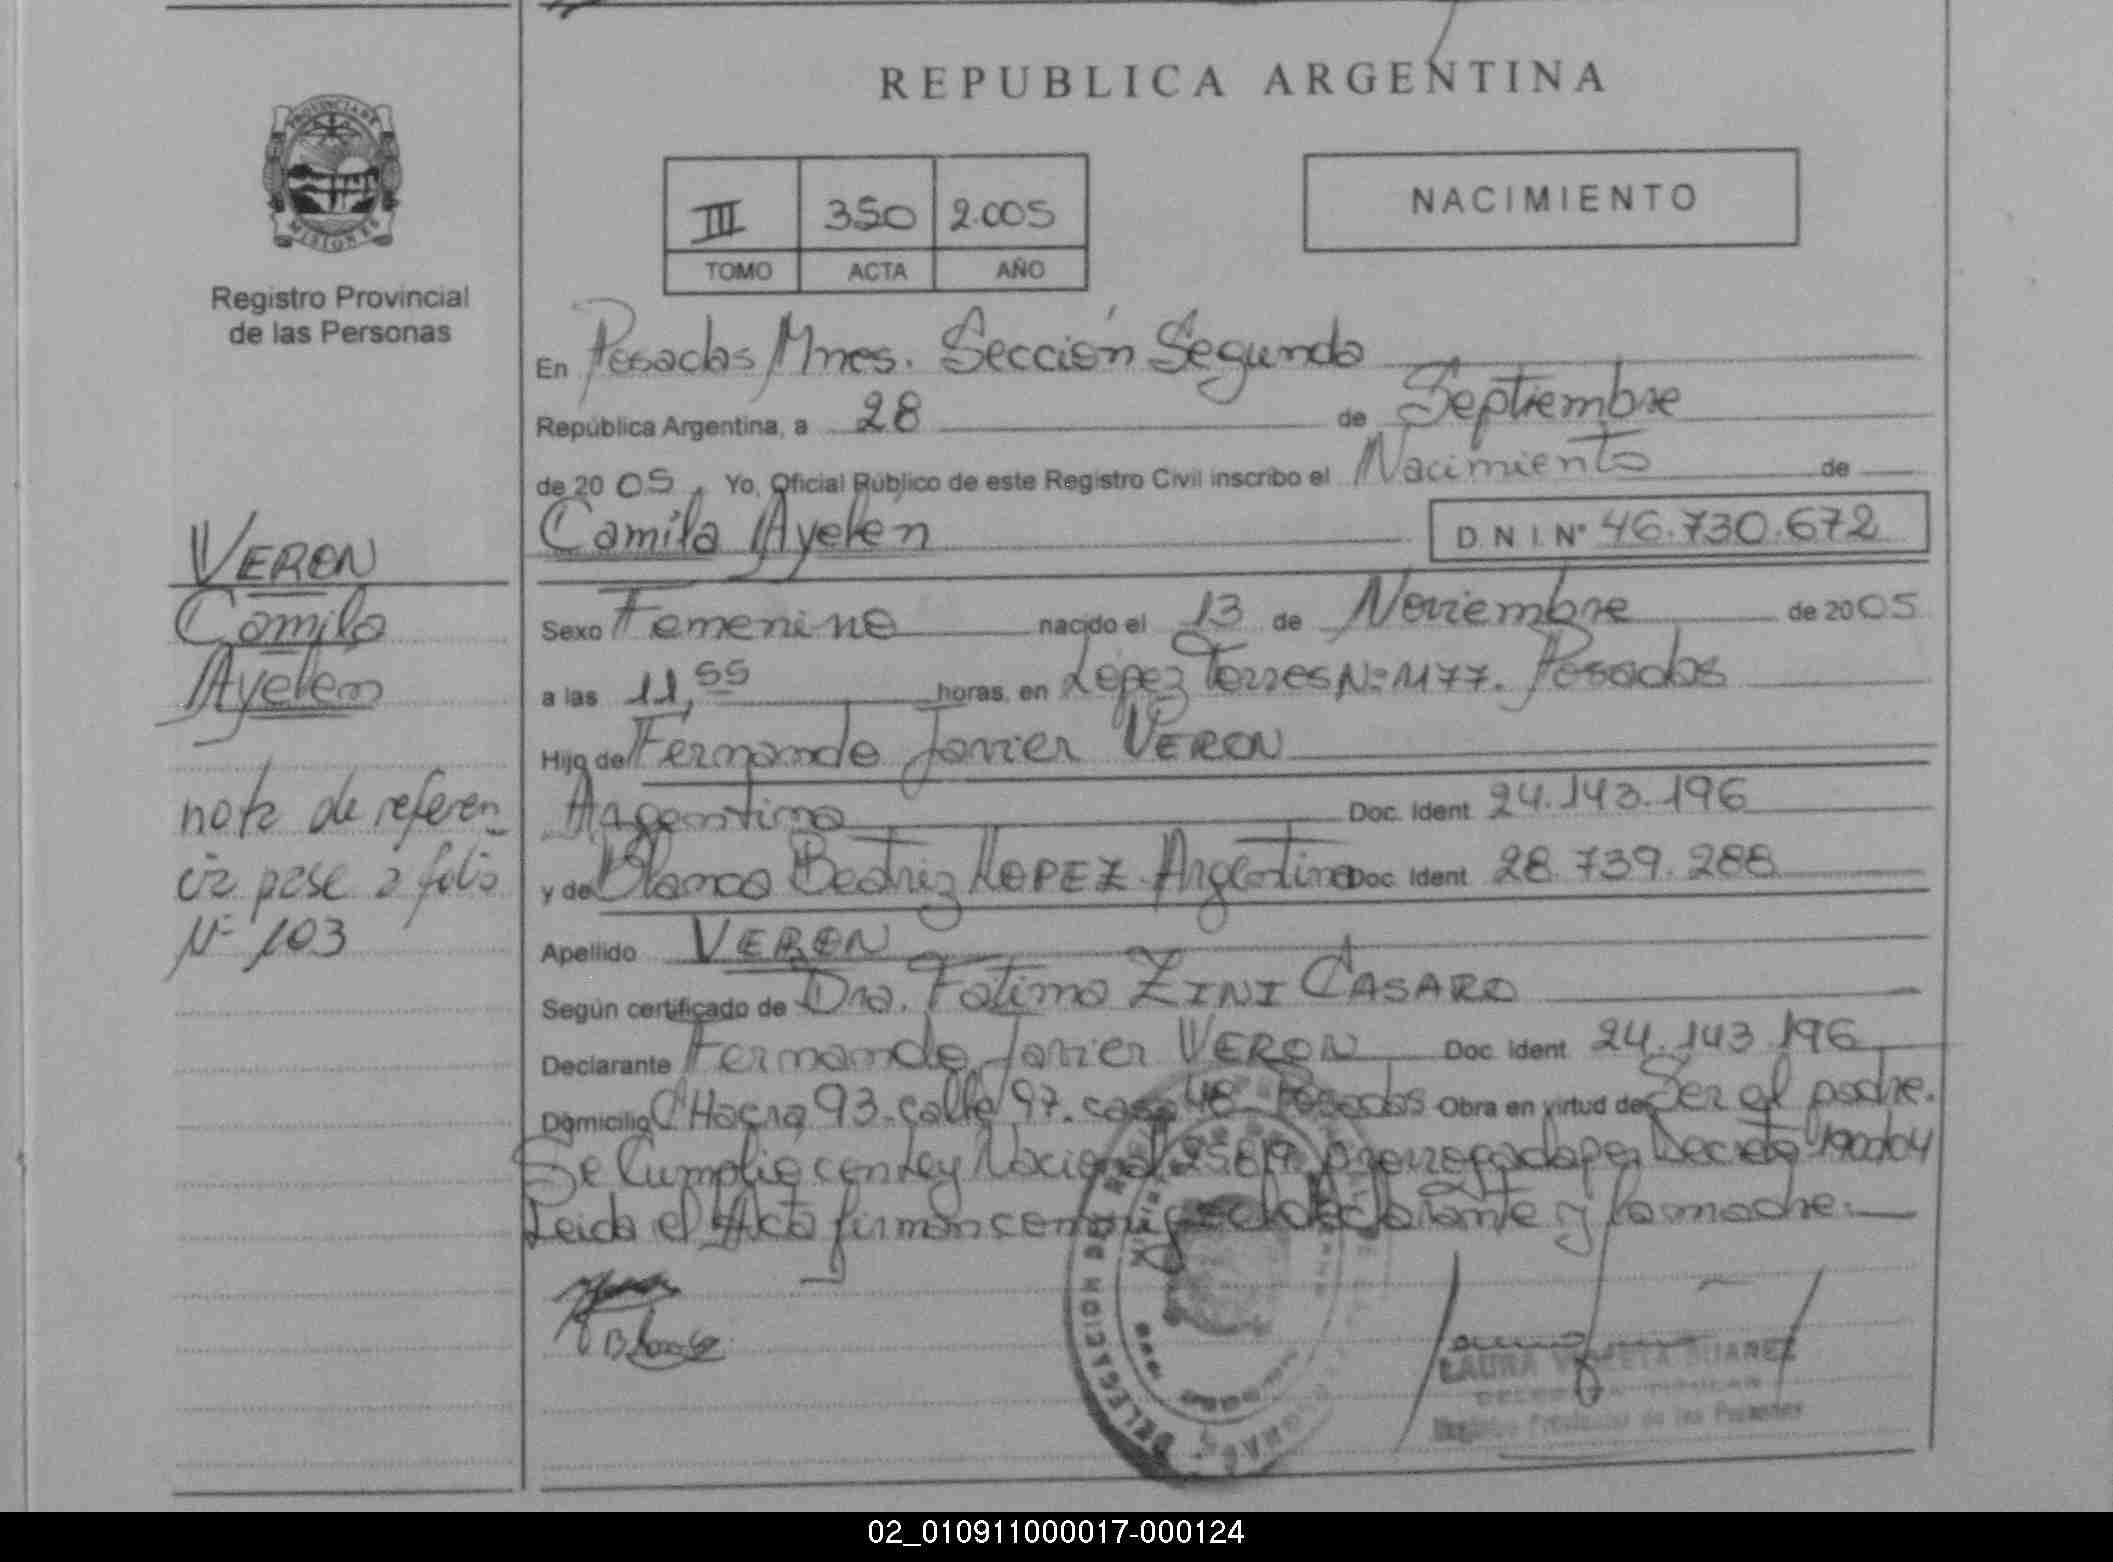 REPUBLICA ARGENTINA
PROVINCIA DE
MISIONES
Registro Provincial
de las Personas
III 350 2.005
TOMO ACTA AÑO
NACIMIENTO
En Posadas Mnes. Sección Segunda
República Argentina, a 28 de Septiembre
de 20 05, Yo, Oficial Público de este Registro Civil inscribo el Nacimiento de
Camila Ayelén D.N.I. N° 46.730.672
VERON
Camila
Ayelén
nota de referen
cia pase a folio
N° 103
Sexo Femenino nacido el 13 de Noviembre de 2005
a las 11,55 horas, en López Torres N° 1177. Posadas
Hijo de Fernando Javier VERON
Argentina Doc. Ident 24.143.196
y de Blanca Beatriz LOPEZ - Argentina Doc. Ident 28.739.288
Apellido VERON
Según certificado de Dra. Fatima ZINI CASARO
Declarante Fernando Javier VERON Doc. Ident 24.143.196
Domicilio CHacra 93. calle 97. casa 48 Posadas Obra en virtud de Ser el padre.
Se Cumplió con Ley Nacional prorrogada por Decreto
Leida el Acta firman conmigo el declarante y la madre.
Blanca
LAURA VIOLETA SUAREZ
DELEGADA TITULAR
Registro Provincial de las Personas
DELEGACION
02_010911000017-000124